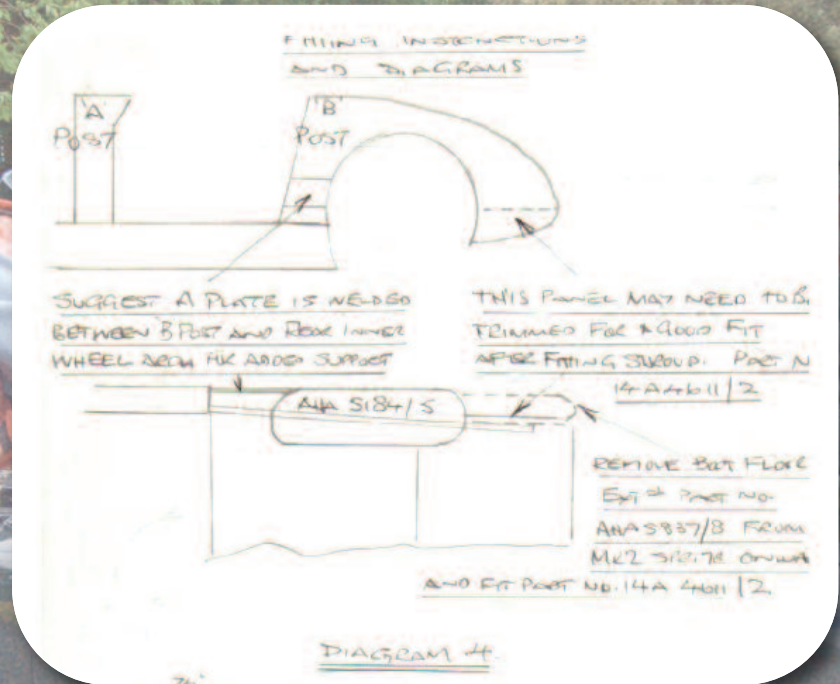 FITTING INSTRUCTIONS
AND DIAGRAMS
'A'
POST
'B'
POST
SUGGEST A PLATE IS WELDED
BETWEEN B POST AND REAR INNER
WHEEL ARCH FOR ADDED SUPPORT
THIS PANEL MAY NEED TO BE
TRIMMED FOR A GOOD FIT
AFTER FITTING SHROUD. PART N
14A4611/2
AHA 5184/5
REMOVE BOOT FLOOR
EXTN PART NO.
AHA5837/8 FROM
MK2
AND FIT PART NO. 14A 4611/2
DIAGRAM 4